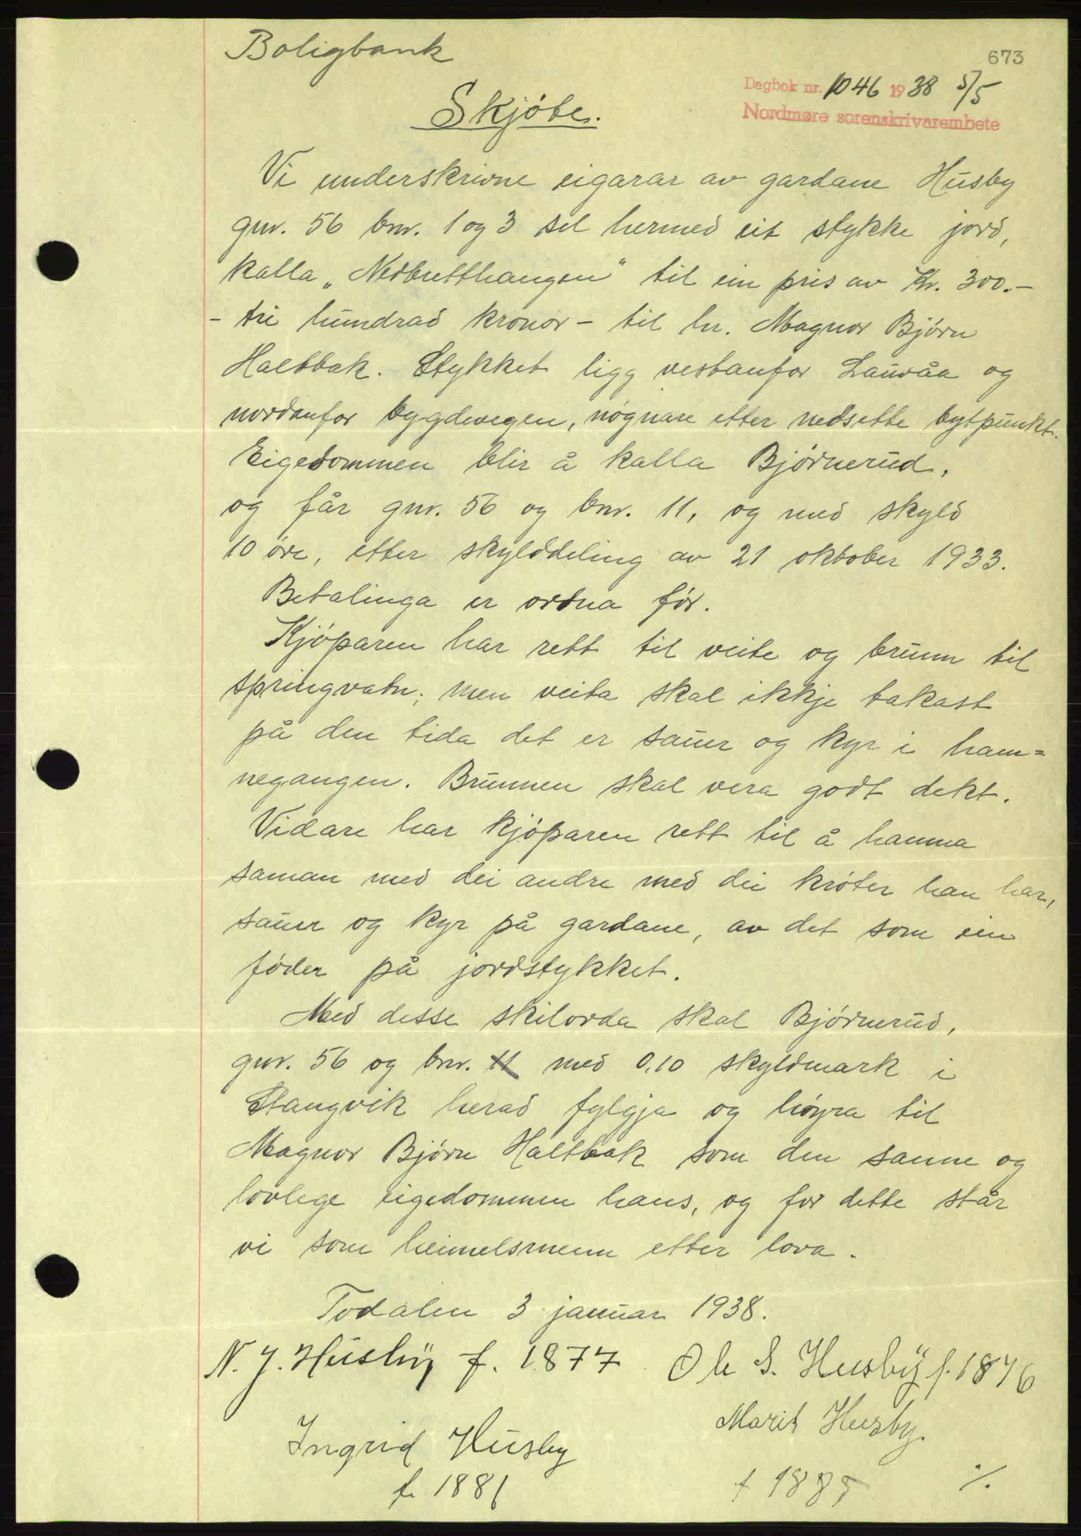 Boligbank
673
Dagbok nr. 1046 1938 5/5
Nordmøre sorenskrivarembete
Skjöte.
Vi underskrivne eigarar av gardane Husby
gnr. 56 bnr. 1 og 3 sel hermed eit stykke jord,
kalla „Nedbretthaugen" til ein pris av Kr. 300.-
- tri hundrad kronor - til hr. Magnor Bjørn
Haltbak. Stykket ligg vestanfor Lauvåa og
nordanfor bygdevegen, nögnare etter nedsette bytpunkt.
Eigedommen blir å kalla Bjørnerud,
og får gnr. 56 og bnr. 11, og med skyld
10 öre, etter skylddeling av 21 oktober 1933.
Betalinga er ordna för.
Kjöparen har rett til veite og brunn til
springvatn, men veita skal ikkje takast
på den tida det er sauer og kyr i ham=
negangen. Brunnen skal vera godt dekt.
Vidare har kjöparen rett til å hamna
saman med dei andre med dei krøter han har,
sauer og kyr på gardane, av det som ein
föder på jordstykket.
Med desse skilorda skal Bjørnerud,
gnr. 56 og bnr. 11 med 0,10 skyldmark i
Stangvik herad fylgja og höyra til
Magnor Bjørn Haltbak som den sanne og
lovlege eigedommen hans, og for dette står
vi som heimelsmenn etter lova.
Todalen 3 januar 1938.
N. J. Husby f. 1877 Ole S. Husby f. 1876
Marit Husby.
Ingrid Husby
f. 1881
f 1885
./.